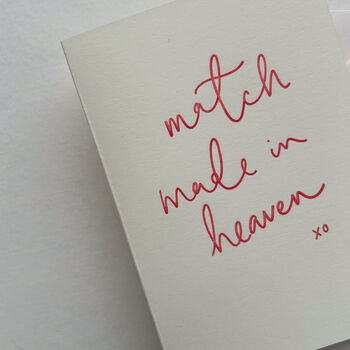 match
made in
heaven
xo